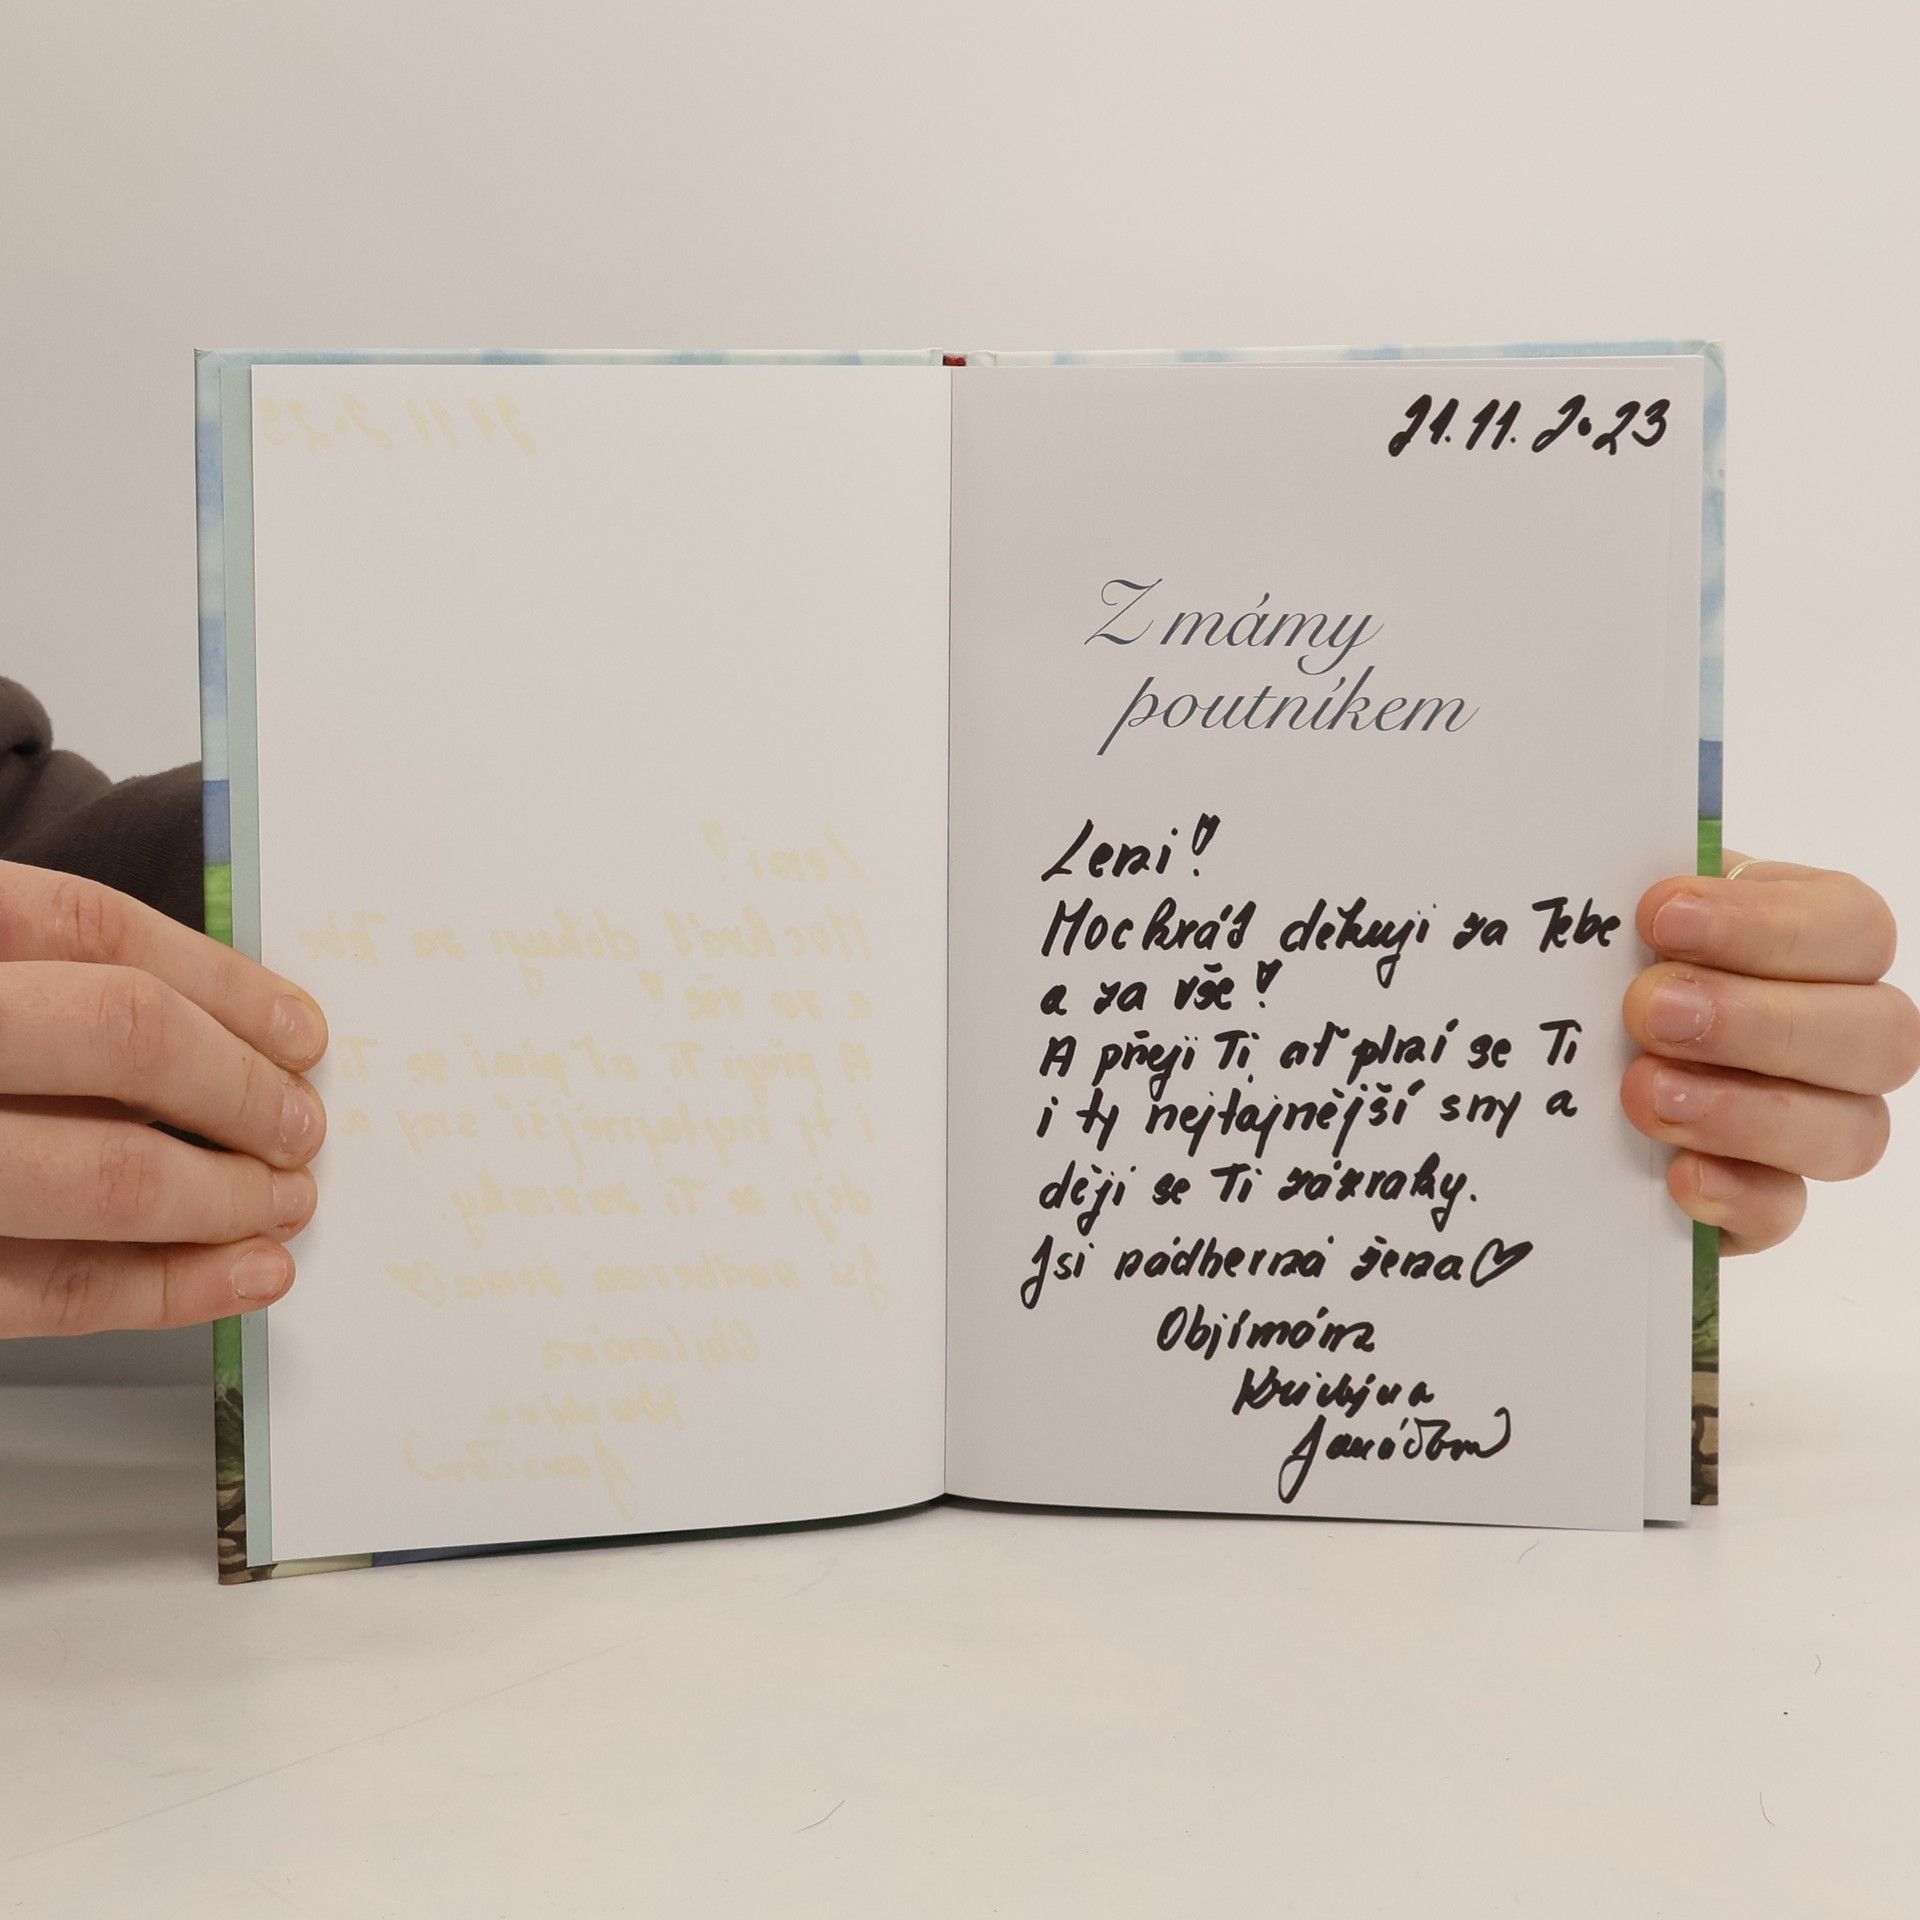 21.11.2023
Z mámy
poutníkem
Leni!
Mockrát děkuji za Tebe
a za vše!
A přeji Ti ať plní se Ti
i ty nejtajnější sny a
ději se Ti zázraky.
Jsi nádherná žena♡
Objímám